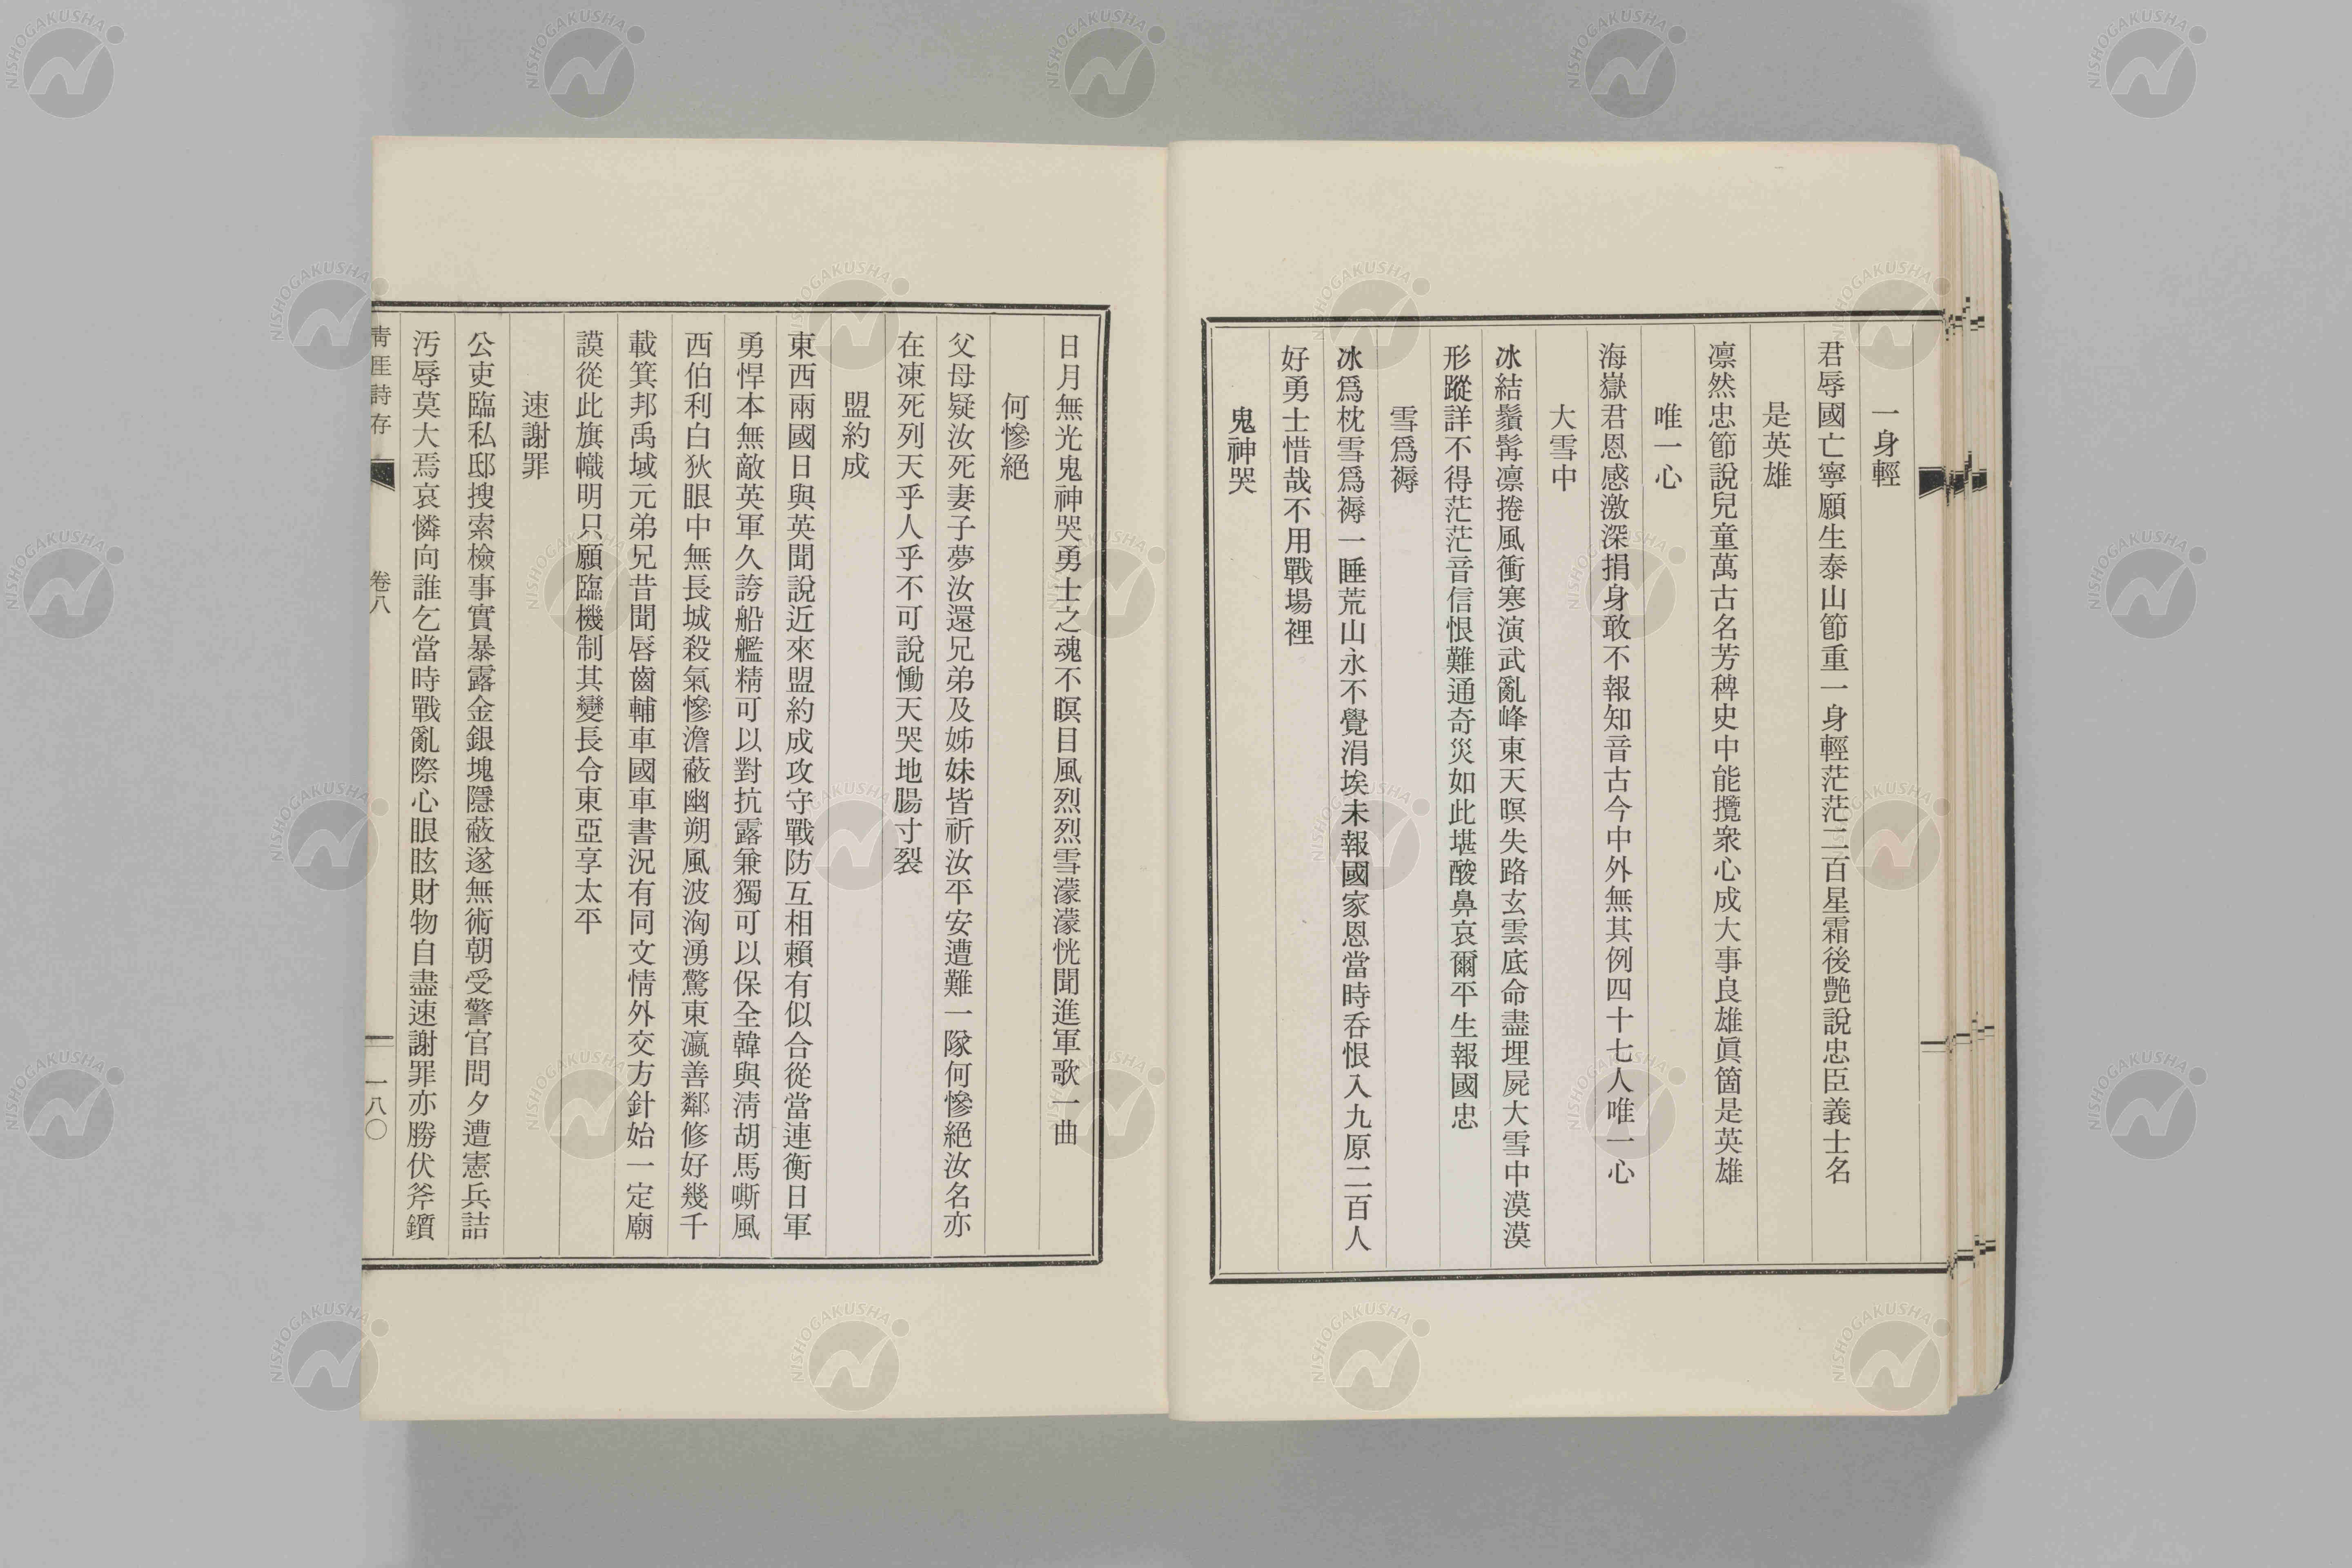 一身輕
君辱國亡寧願生泰山節重一身輕茫茫二百星霜後艷說忠臣義士名
是英雄
凛然忠節說兒童萬古名芳稗史中能攬衆心成大事良雄眞箇是英雄
唯一心
海嶽君恩感激深捐身敢不報知音古今中外無其例四十七人唯一心
大雪中
冰結鬚髯凛捲風衝寒演武亂峰東天暝失路玄雲底命盡埋屍大雪中漠漠
形蹤詳不得茫茫音信恨難通奇災如此堪酸鼻哀爾平生報國忠
雪爲褥
冰爲枕雪爲褥一睡荒山永不覺涓埃未報國家恩當時呑恨入九原二百人
好勇士惜哉不用戰場裡
鬼神哭
日月無光鬼神哭勇士之魂不瞑目風烈烈雪濛濛恍聞進軍歌一曲
何慘絕
父母疑汝死妻子夢汝還兄弟及姊妹皆祈汝平安遭難一隊何慘絕汝名亦
在凍死列天乎人乎不可說慟天哭地腸寸裂
盟約成
東西兩國日與英聞說近來盟約成攻守戰防互相賴有似合從當連衡日軍
勇悍本無敵英軍久誇船艦精可以對抗露兼獨可以保全韓與淸胡馬嘶風
西伯利白狄眼中無長城殺氣慘澹蔽幽朔風波洶湧驚東瀛善鄰修好幾千
載箕邦禹域元弟兄昔聞唇齒輔車國車書況有同文情外交方針始一定廟
謨從此旗幟明只願臨機制其變長令東亞享太平
速謝罪
公吏臨私邸搜索檢事實暴露金銀塊隱蔽遂無術朝受警官問夕遭憲兵詰
汚辱莫大焉哀憐向誰乞當時戰亂際心眼眩財物自盡速謝罪亦勝伏斧鑕
靑厓詩存
卷八
一八〇
NISHOGAKUSHA